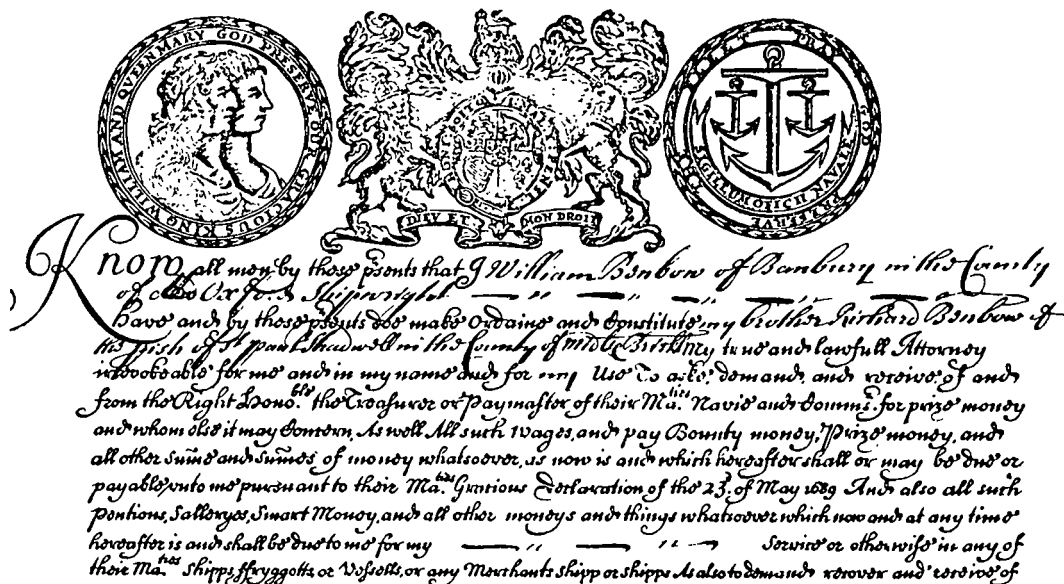 KING WILLIAM AND QUEEN MARY GOD PRESERVE OUR GRACIOUS
DIEV ET MON DROIT
PRAY GOD PRESERVE
SIGILLUM OFFICII NAVAL
Know all men by these p̃sents that I William Benbow of Banbury in the County
of Oxford Shipwright
have and by these p̃sents doe make Ordaine and Constitute my brother Richard Benbow of
the p̃ish of St. paul Shadwell in the County of Midd: my true and lawfull Attorney
irrevokeable for me and in my name and for my Use To aske, demand, and receive, of and
from the Right Honoble. the Treasurer or Paymaster of their Maties. Navie and Commrs. for prize money
and whom else it may Concern, As well All such Wages, and pay Bounty money, Prize money, and
all other sum̃e and sum̃es of money whatsoever, as now is and which hereafter shall or may be due or
payable, unto me pursuant to their Maties. Gracious Declaration of the 23d. of May 1689 And also all such
Pentions, Salleryes, Smart Money, and all other moneys and things whatsoever which now and at any time
hereafter is and shall be due to me for my Service or otherwise in any of
their Maties. Shipps, ffryggotts or Vessells, or any Merchants Shipp or shipps As also to demand, recover and receive of